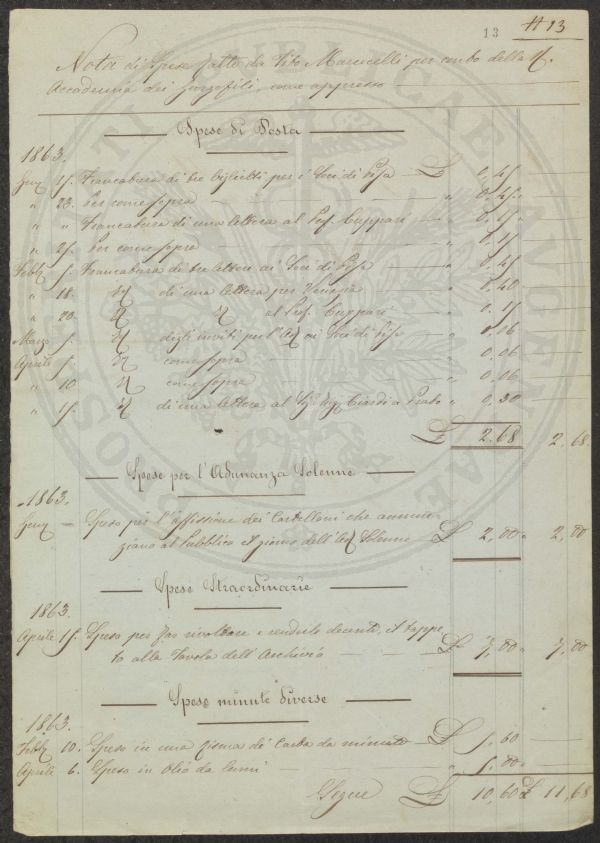 13 # 13
Nota di Spese fatte da Vito Marucelli per conto della R.
Accademia dei Georgofili, come appresso
Spese di Posta
1863.
Francatura di tre biglietti per i Soci di Pisa £ 0,45
" 23. Per come sopra " 0,45
" " Francatura di una lettera al Prof. Cuppari " 0,15
" 25. Per come sopra " 0,15
Francatura di tre lettere ai Soci di Pisa " 0,45
" 18. di una lettera per Venezia " 0,40
" 20. al Prof. Cuppari " 0,15
Marzo degli inviti per l'Ad. ai Soci di Pisa " 0,06
Aprile come sopra " 0,06
" 10 come sopra " 0,06
" di una lettera al Sig. Ciardi a Prato " 0,30
£ 2,68 2,68
Spese per l'Adunanza Solenne
1863.
Speso per l'affissione dei Cartelloni che annun-
ziano al Pubblico il giorno dell'Ad. Solenne £ 2,00 2,00
Spese Straordinarie
1863.
Aprile 15. Speso per far rivoltare e renderlo decente, il tappe
to alla Tavola dell'Archivio £ 7,00 7,00
Spese minute diverse
1863.
10. Speso in una risma di Carta da minute £
Aprile 6. Speso in Olio da lumi "
Segue £ 10,60 £ 11,68